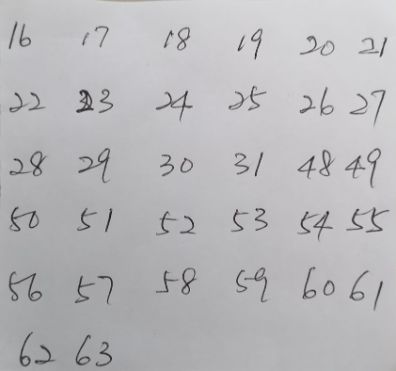 16 17 18 19 20 21
22 23 24 25 26 27
28 29 30 31 48 49
50 51 52 53 54 55
56 57 58 59 60 61
62 63